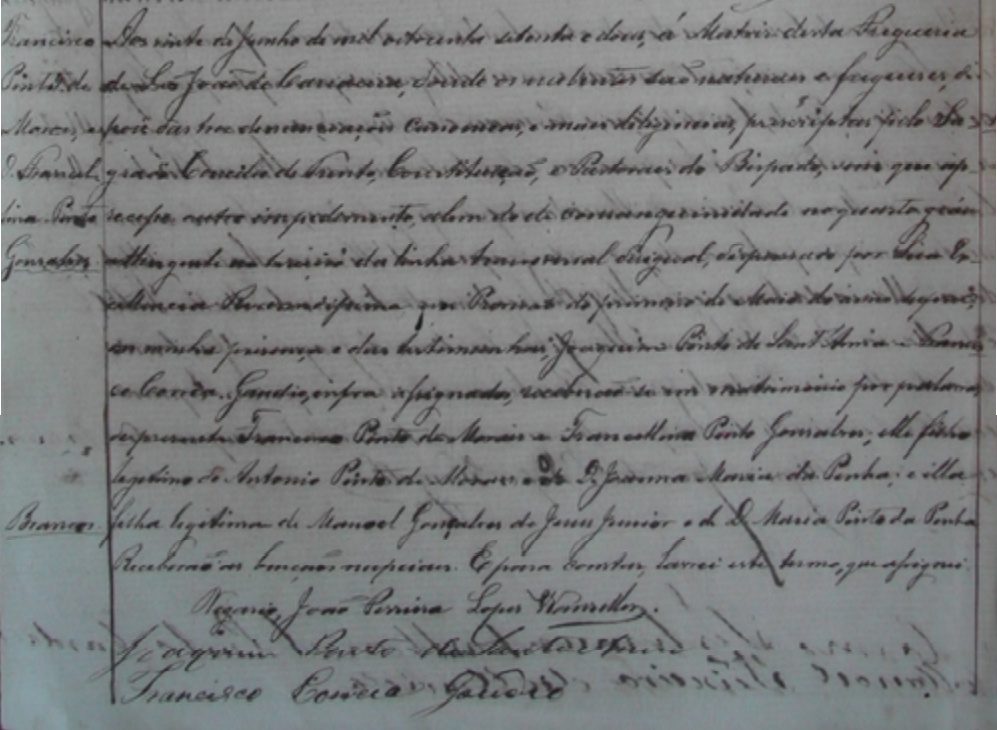 Francisco
Pinto de
Moraes, e
D. Francel-
lina Pinto
Gonsalves
Brancos.
Aos vinte de Junho de mil oitocentos setenta e dous, á Matriz desta Freguesia
de São João de Cariacica, donde os nubentes são naturaes e freguezes, de-
pois das tres denunciações canonicas, e mais diligencias, prescriptas pelo Sa-
grado Concilio de Trento, Constituição, e Pastoraes do Bispado, sem que ap-
parecesse outro impedimento, alem do de consanguinidade no quarto gráu
attingente ao terceiro da linha transversal desigual, dispensado por Sua Ex-
cellencia Reverendissima em Provisão do primeiro de Maio do anno
em minha presença e das testemunhas, Joaquim Pinto de Sant'Anna e Francis-
co Corrêa infra assignados, receberão-se em matrimonio por palavras
de presente Francisco Pinto de Moraes e Francellina Pinto Gonsalves, elle filho
legitimo de Antonio Pinto de Moraes e de D. Joanna Maria da Penha; e ella
filha legitima de Manoel Gonçalves de Jesus Junior e de D. Maria Pinto da Penha
Receberão as bençãos nupciaes. E para constar, lavrei este termo, que assignei.
Vigario, João Pereira Lopes
Joaquim Pinto de
Francisco Correia